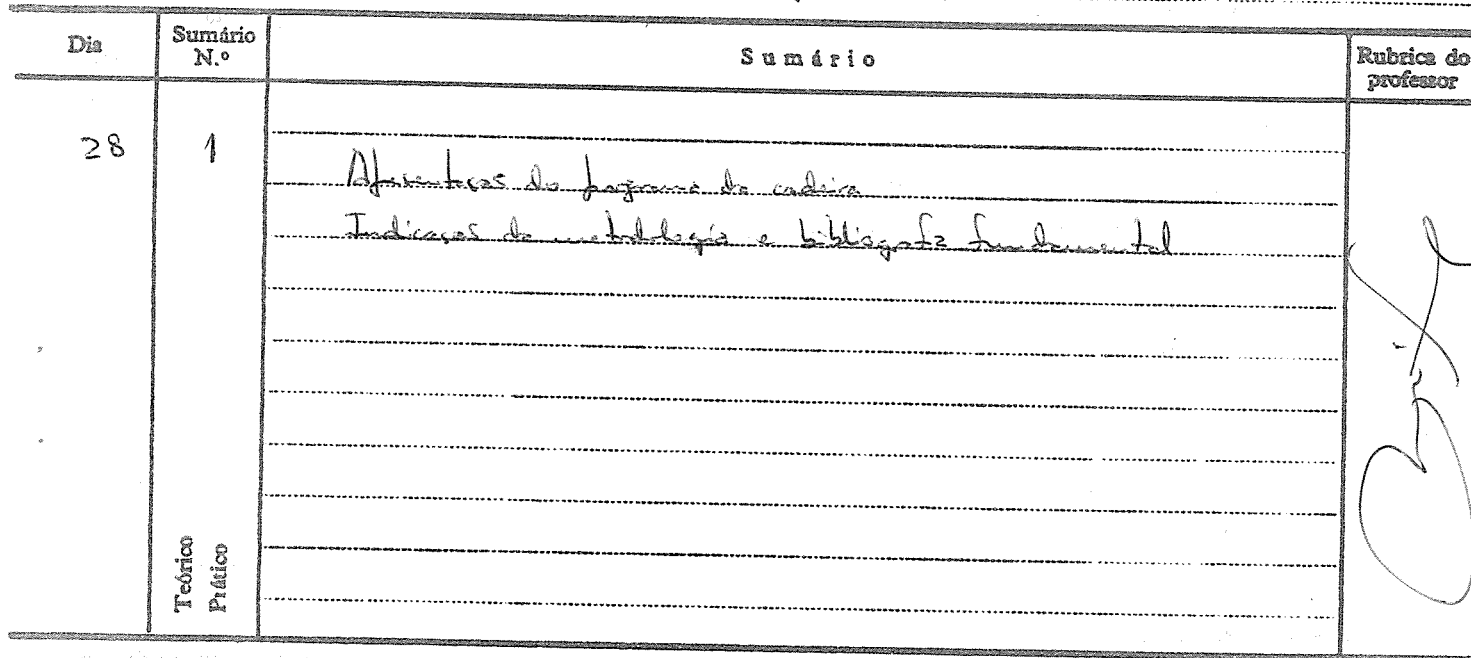 Dia
Sumário
N.º
Sumário
Rubrica do
professor
28
1
Apresentação do programa da cadeira
Indicação da metodologia e bibliografia fundamental
Teórico
Prático